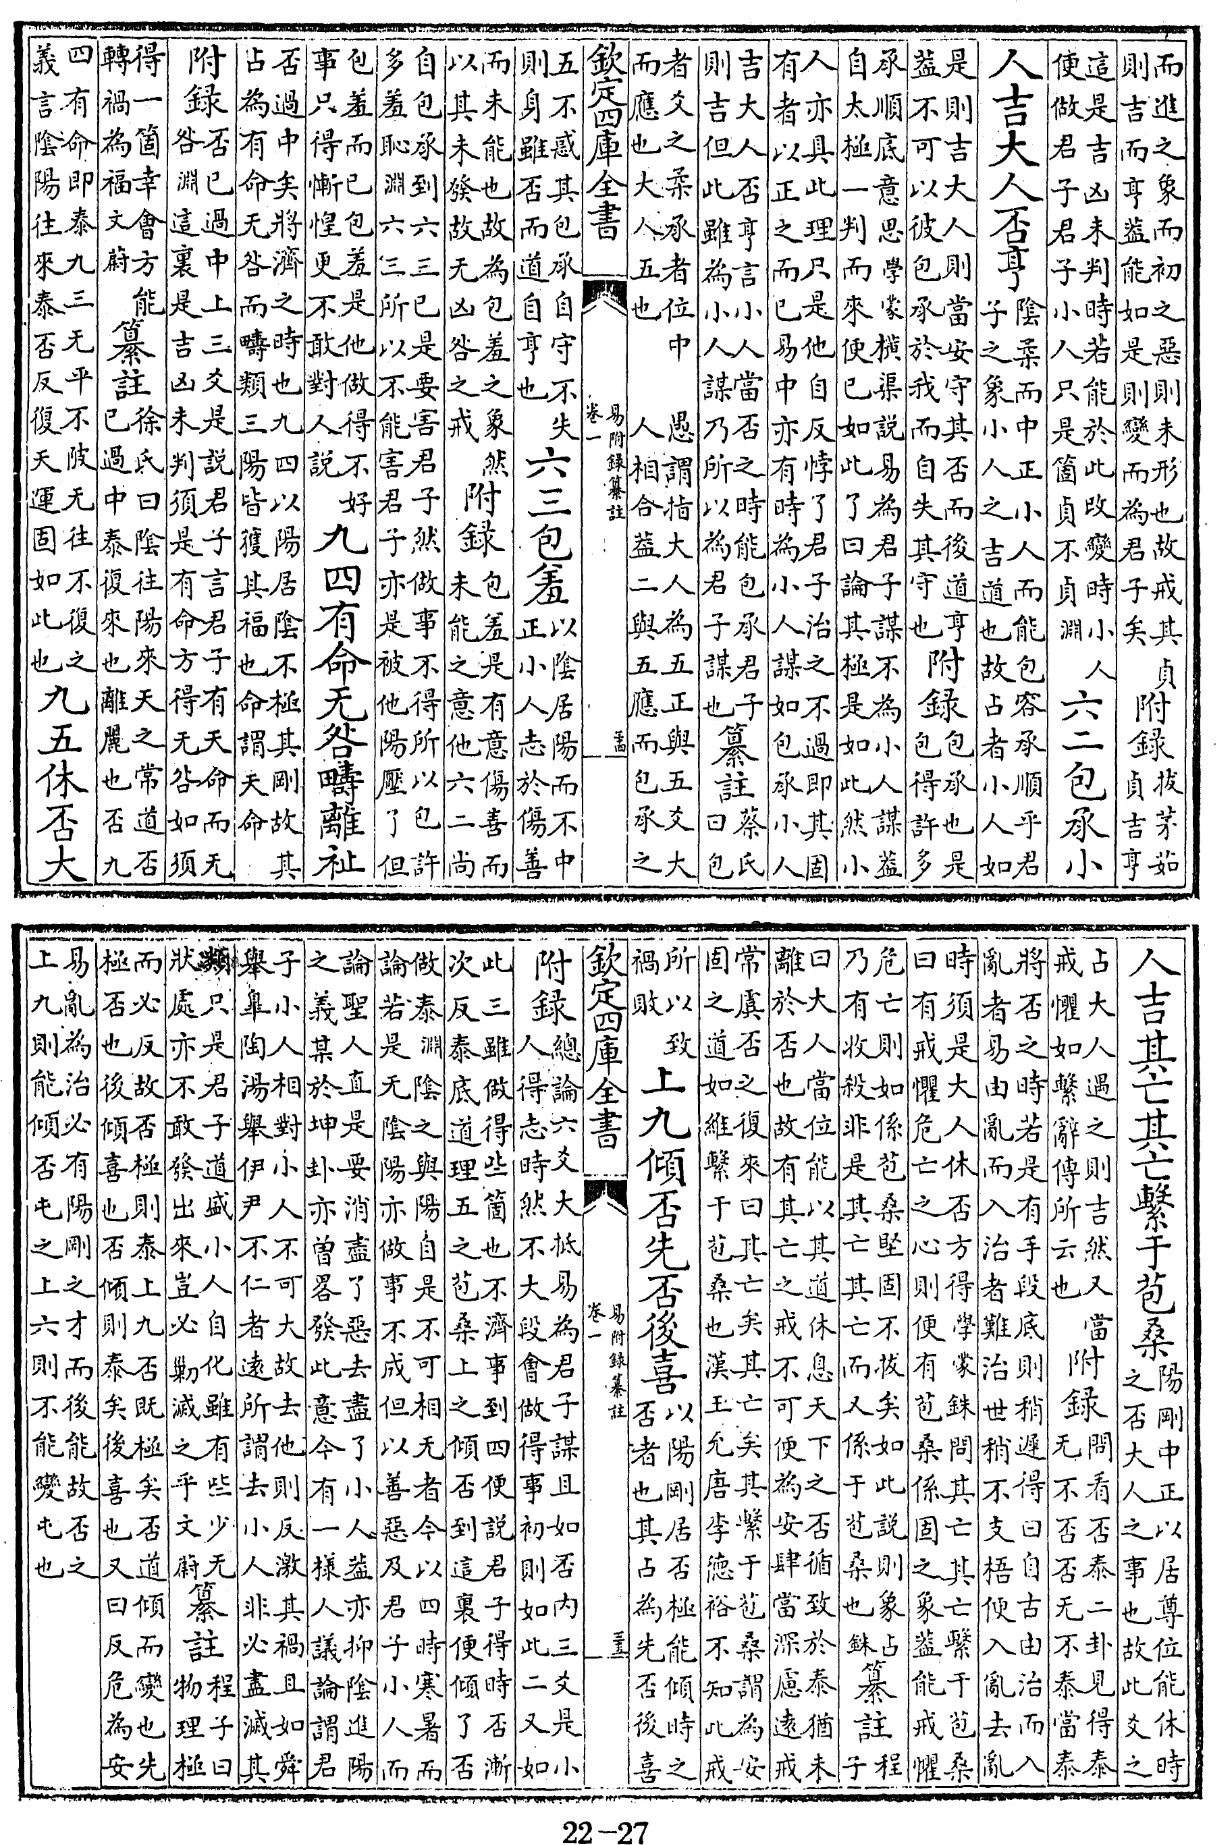 而進之象而初之惡則未形也故戒其貞則吉而亨蓋能如是則變而為君子矣附録拔茅茹貞吉亨
這是吉凶未判時若能於此改變時小人使做君子君子小人只是箇貞不貞淵六二包承小
人吉大人否亨陰柔而中正小人而能包容承順乎君子之象小人之吉道也故占者小人如
是則吉大人則當安守其否而後道亨蓋不可以彼包承於我而自失其守也附録包承也是包得許多
承順底意思學蒙横渠説易為君子謀不為小人謀蓋自太極一判而來便已如此了曰論其極是如此然小
人亦具此理只是他自反悖了君子治之不過即其固有者以正之而已易中亦有時為小人謀如包承小人
吉大人否亨言小人當否之時能包承君子則吉但此雖為小人謀乃所以為君子謀也纂註蔡氏曰包
者爻之柔承者位中而應也大人五也 愚謂指大人為五正與五爻大人相合蓋二與五應而包承之
欽定四庫全書 易附録纂註 卷一
五不惑其包承自守不失則身雖否而道自亨也六三包羞以陰居陽而不中正小人志於傷善
而未能也故為包羞之象然以其未發故无凶咎之戒附録包羞是有意傷善而未能之意他六二尚
自包承到六三已是要害君子然做事不得所以包許多羞恥淵六三所以不能害君子亦是被他陽壓了但
包羞而已包羞是他做得不好事只得慚惶更不敢對人説九四有命无咎疇離祉
否過中矣將濟之時也九四以陽居陰不極其剛故其占為有命无咎而疇類三陽皆獲其福也命謂天命
附録否已過中上三爻是説君子言君子有天命而无咎淵這裏是吉凶未判須是有命方得无咎如須
得一箇幸會方能轉禍為福文蔚纂註徐氏曰陰往陽來天之常道否已過中泰復來也離麗也否九
四有命即泰九三无平不陂无往不復之義言陰陽往來泰否反復天運固如此也九五休否大
人吉其亡其亡繫于苞桑陽剛中正以居尊位能休時之否大人之事也故此爻之
占大人遇之則吉然又當戒懼如繫辭傳所云也附録問看否泰二卦見得泰无不否否无不泰當泰
將否之時若是有手段底則稍遲得曰自古由治而入亂者易由亂而入治者難治世稍不支梧便入亂去亂
時須是大人休否方得學蒙銖問其亡其亡繫于苞桑曰有戒懼危亡之心則便有苞桑係固之象蓋能戒懼
危亡則如係苞桑堅固不拔矣如此説則象占乃有收殺非是其亡其亡而又係于苞桑也銖纂註程子
曰大人當位能以其道休息天下之否循致於泰猶未離於否也故有其亡之戒不可便為安肆當深慮遠戒
常虞否之復來曰其亡矣其亡矣其繫于苞桑謂為安固之道如維繫于苞桑也漢王允唐李德裕不知此戒
所以致禍敗上九傾否先否後喜以陽剛居否極能傾時之否者也其占為先否後喜
欽定四庫全書 易附録纂註 卷一
附録總論六爻大抵易為君子謀且如否内三爻是小人得志時然不大段會做得事初則如此二又如
此三雖做得些箇也不濟事到四便説君子得時否漸次反泰底道理五之苞桑上之傾否到這裏便傾了否
做泰淵陰之與陽自是不可相无者今以四時寒暑而論若是无陰陽亦做事不成但以善惡及君子小人而
論聖人直是要消盡了惡去盡了小人蓋亦抑陰進陽之義某於坤卦亦曾畧發此意今有一樣人議論謂君
子小人相對小人不可大故去他則反激其禍且如舜舉臯陶湯舉伊尹不仁者遠所謂去小人非必盡滅其
類只是君子道盛小人自化雖有些少无狀處亦不敢發出來豈必勦滅之乎文蔚纂註程子曰物理極
而必反故否極則泰上九否既極矣否道傾而變也先極否也後傾喜也否傾則泰矣後喜也又曰反危為安
易亂為治必有陽剛之才而後能故否之上九則能傾否屯之上六則不能變屯也
22-27